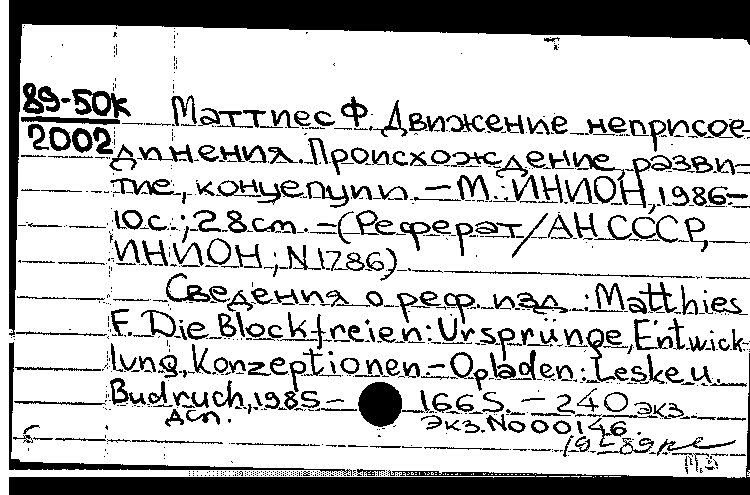 89-50к
2002
Маттиес Ф. Движение неприсое
динения. Происхождение, разви-
тие, концепции. – М.: ИНИОН, 1986–
10 с.; 28 cm. – (Реферат/АН СССР,
ИНИОН; N 1786)
Сведения о реф. изд.: Matthies
F. Die Blockfreien: Ursprünge, Entwick
lung, Konzeptionen – Opladen: Leske u.
Budruch, 1985 – 166 S. – 240 экз
дсп. экз. No 000146.
19 – 89